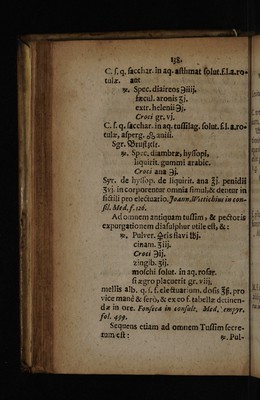 138.
C. s. q. sacchar. in aq. asthmat solut. s. l. a. ro-
tulæ. aut
℞. Spec. diaireos ʒiiij.
fæcul. aronis ʒj.
extr. helenii ℈j.
Croci gr. vj.
C. s. q. sacchar. in aq. tussilag. solut. s. l. a. ro-
tulæ, asperg. anisi.
Sgr. Brustzstr.
℞. Spec. diambræ, hyssopi,
liquirit. gummi arabic.
Croci ana ℈j.
Syr. de hyssop. de liquirit. ana ℥j. penidii
ʒvj. in corporentur omnia simul, & dentur in
fictili pro electuario. Joann. Wittichius in con-
sil. Med. f. 116.
Ad omnem antiquam tussim, & pectoris
expurgationem diasulphur utile est, & :
℞. Pulver. flavi
cinam. ʒiij.
Croci ℈ij.
zingib. ʒij.
moschi solut. in aq. rosar.
si ægro placuerit gr. viij.
mellis alb. q. s. f. electuarium. dosis ʒß. pro
vice mane & sero, & ex eo f. tabellæ detinen-
dæ in ore. Fonseca in consult. Med. empyr.
fol. 499.
Sequens etiam ad omnem Tussim secre-
tum est :
℞. Pul-